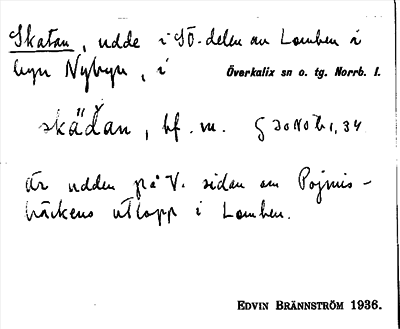 Skatan, udde i SÖ-delen av Lomben i
byn Nybyn, i Överkalix sn o. tg. Norrb. l.
skäđan, bf. m. G 30 No b 1, 34
är udden på V. sidan om Pojmis-
bäckens utlopp i Lomben.
EDVIN BRÄNNSTRÖM 1936.